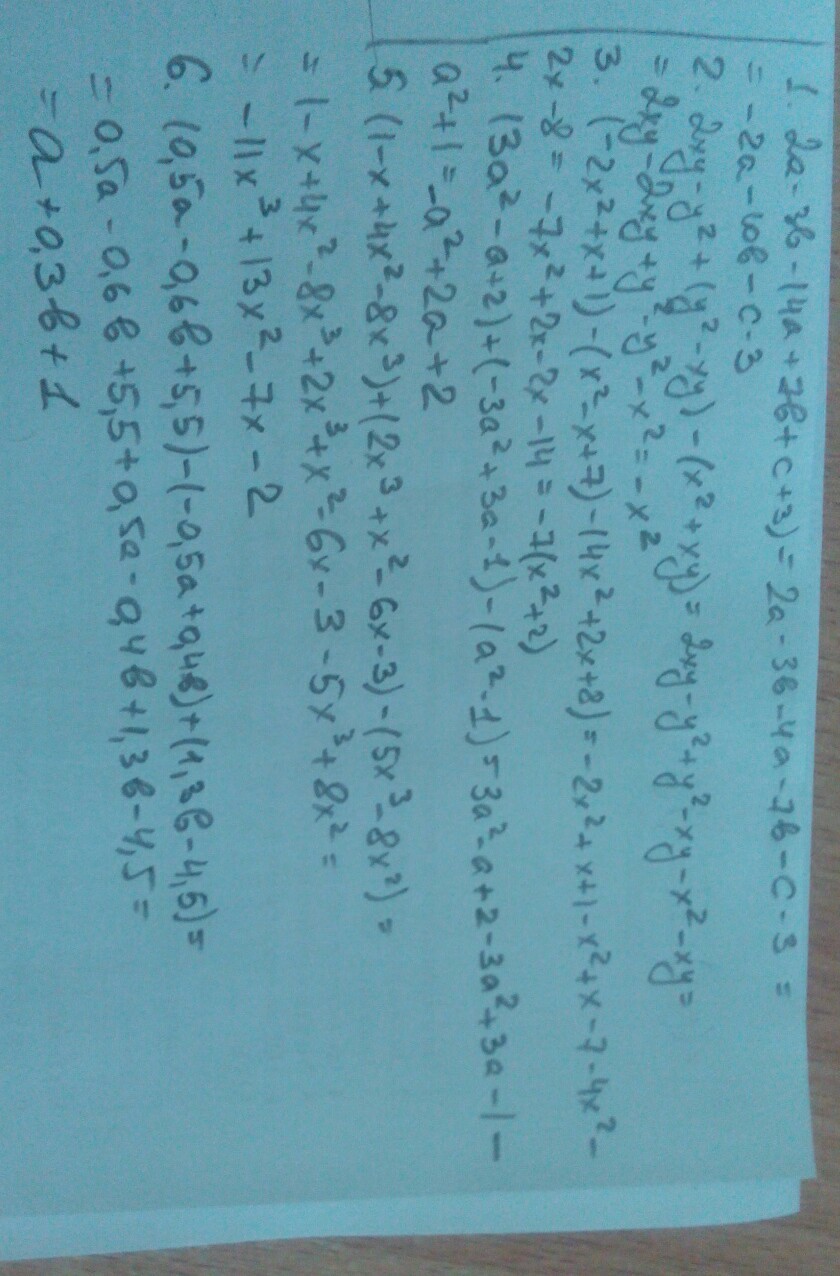 1. 2a-3b-(4a+7b+c+3)=2a-3b-4a-7b-c-3=
=-2a-10b-c-3
2. 2xy-y²+(y²-xy)-(x²+xy)=2xy-y²+y²-xy-x²-xy=
=2xy-2xy+y²-y²-x²=-x²
3. (-2x²+x+1)-(x²-x+7)-(4x²+2x+8)=-2x²+x+1-x²+x-7-4x²-
2x-8=-7x²+2x-2x-14=-7(x²+2)
4. (3a²-a+2)+(-3a²+3a-1)-(a²-1)=3a²-a+2-3a²+3a-1-
a²+1=-a²+2a+2
5. (1-x+4x²-8x³)+(2x³+x²-6x-3)-(5x³-8x²)=
=1-x+4x²-8x³+2x³+x²-6x-3-5x³+8x²=
=-11x³+13x²-7x-2
6. (0,5a-0,6b+5,5)-(-0,5a+0,4b)+(1,3b-4,5)=
=0,5a-0,6b+5,5+0,5a-0,4b+1,3b-4,5=
=a+0,3b+1